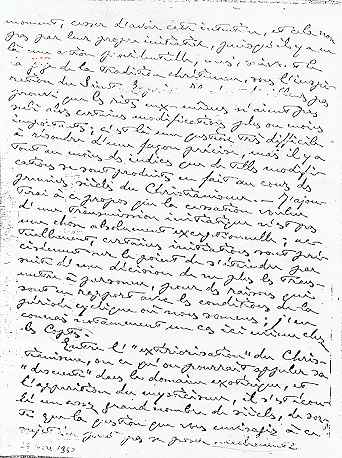 moment, cesser d'avoir cette intention, et cela non
pas par leur propre initiative, puisqu'il y a eu
là une action providentielle, mais
de la tradition chrétienne, sous l'inspi-
ration du Saint-Esprit
prouvé que les rites eux-mêmes n'aient pas
subi alors certaines modifications plus ou moins
importantes; c'est là une question très difficile
à résoudre d'une façon précise, mais il y a
tout au moins des indices que de telles modifi-
cations se sont produites en fait au cours des
premiers siècles du Christianisme. – J'ajou-
terai à ce propos que la cessation voulue
d'une transmission initiatique n'est pas
une chose absolument exceptionnelle; ac-
tuellement, certaines initiations sont pré-
cisément sur le point de s'éteindre par
suite d'une décision de ne plus les trans-
mettre à personne, pour des raisons qui
sont en rapport avec les conditions de la
période cyclique où nous sommes; j'en
connais notamment un cas ici même chez
les Coptes.
Entre l'"extériorisation" du Chris-
tianisme, ou ce qu'on pourrait appeler sa
"descente" dans le domaine exotérique, et
l'apparition du mysticisme, il s'est écou-
lé un assez grand nombre de siècles, de sor-
te que la question que vous envisagez à ce
sujet n'en peut pas se poser